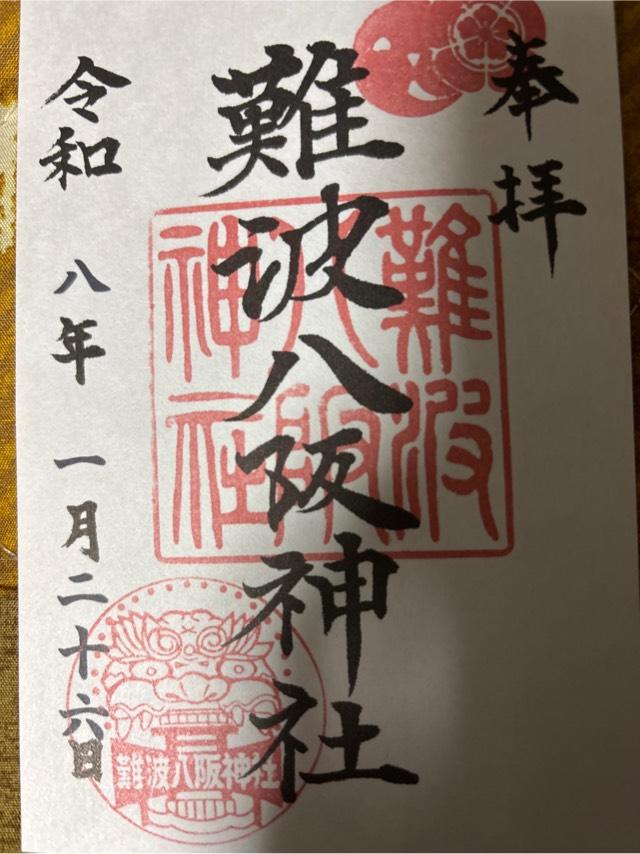 奉拝
難波八阪神社
令和 八年 一月二十六日
難波八阪神社
難波八阪神社